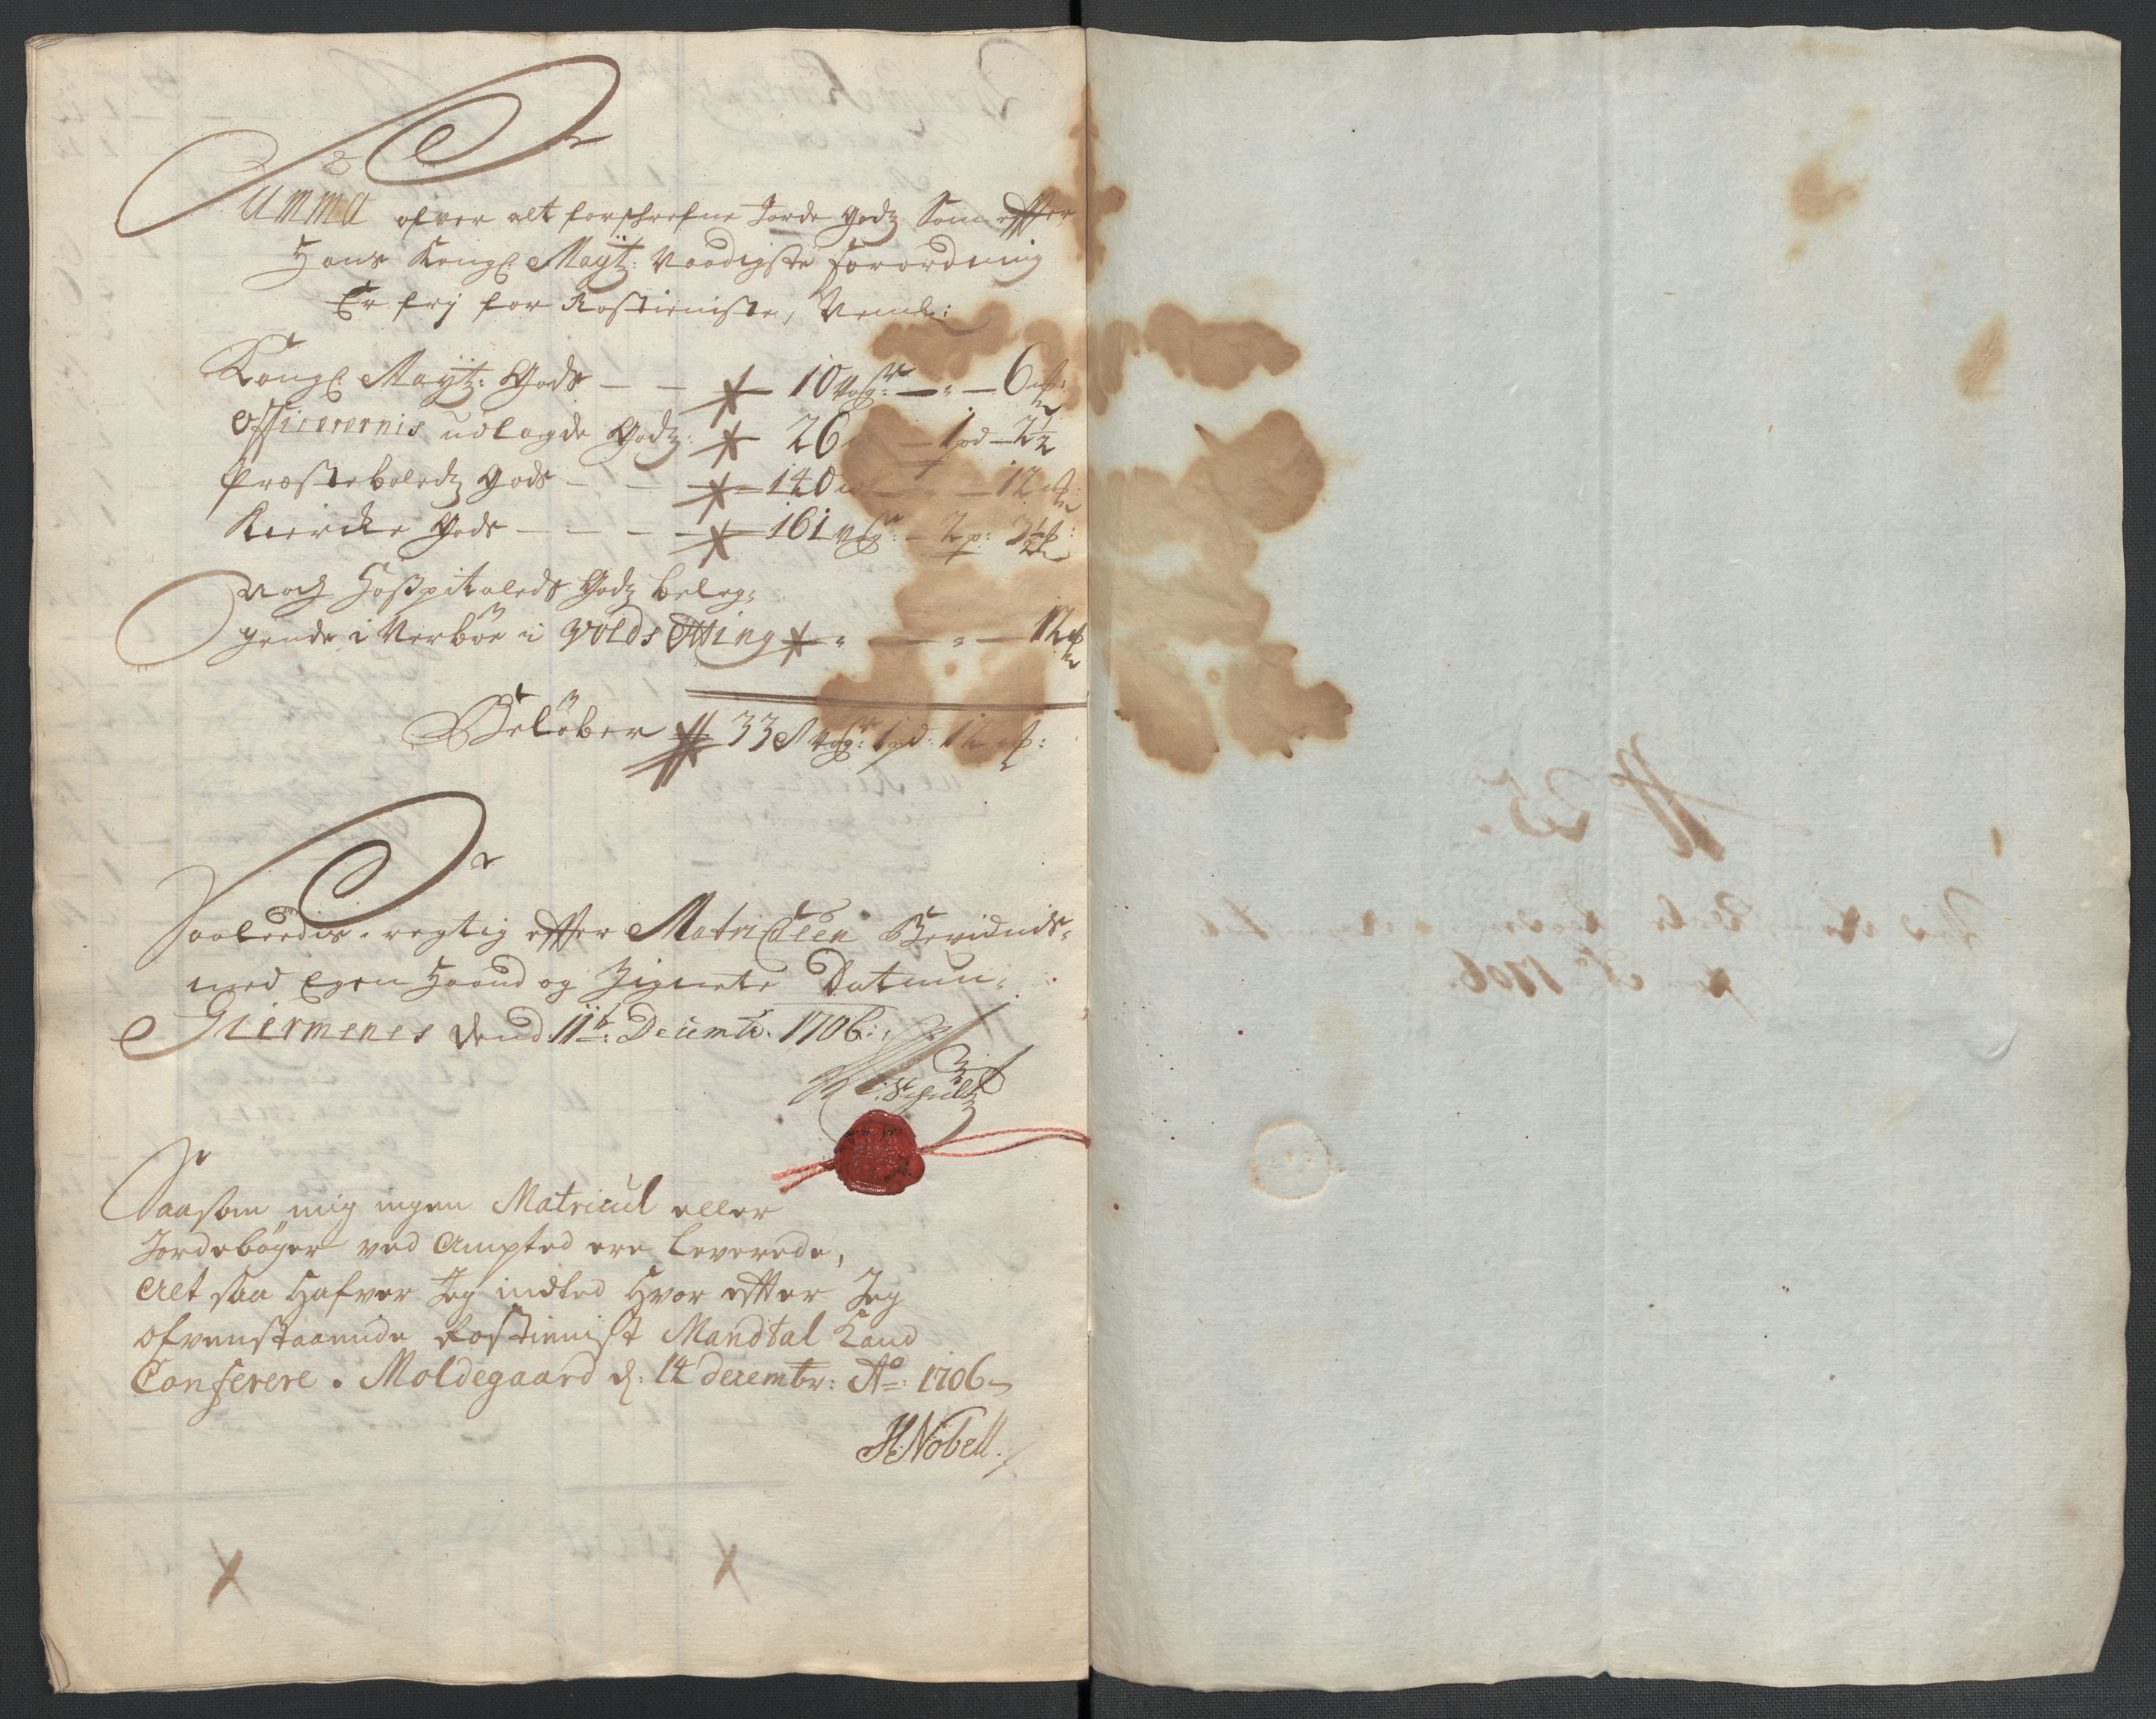 Summa ofver alt forschrefne Jorde Godz Som effter
Hans Kongl: Maytz: Naadigste forordning
Er frj for Rostieniste, Neml:
Kongl: Maytz: Gods — — 10 vog:r — " — 6 mk:
Officerernis udlagde Godz: 26 — 1 pd — 2½
Præsteboledtz Gods — — 140 — " — 12 mk:
Kiercke Gods — — — — 161 vog:r — 2 p: 3½ mk:
Noch Hospitaleds Godz beleg-
gende i Nerböe i Volds Otting " — " — 12 mk
Belöber 338 vog:r 1 pd: 12 mk:
Saaleedis regtig effter Matriculen Bevidnis-
med Egen Haand og Zignete Datum
Giermenes dend 11te: Decembr: 1706:
Schultz
Saasom mig ingen Matricul eller
Jordebøger ved Ampted ere leverede,
Alt saa Hafver Jeg indted Hvor effter Jeg
ofvenstaaende Rostienist Mandtal Kand
Conferere. Moldegaard d: 14 decembr: Ao: 1706
H: Nobell.
No 25.
Ao 1706.